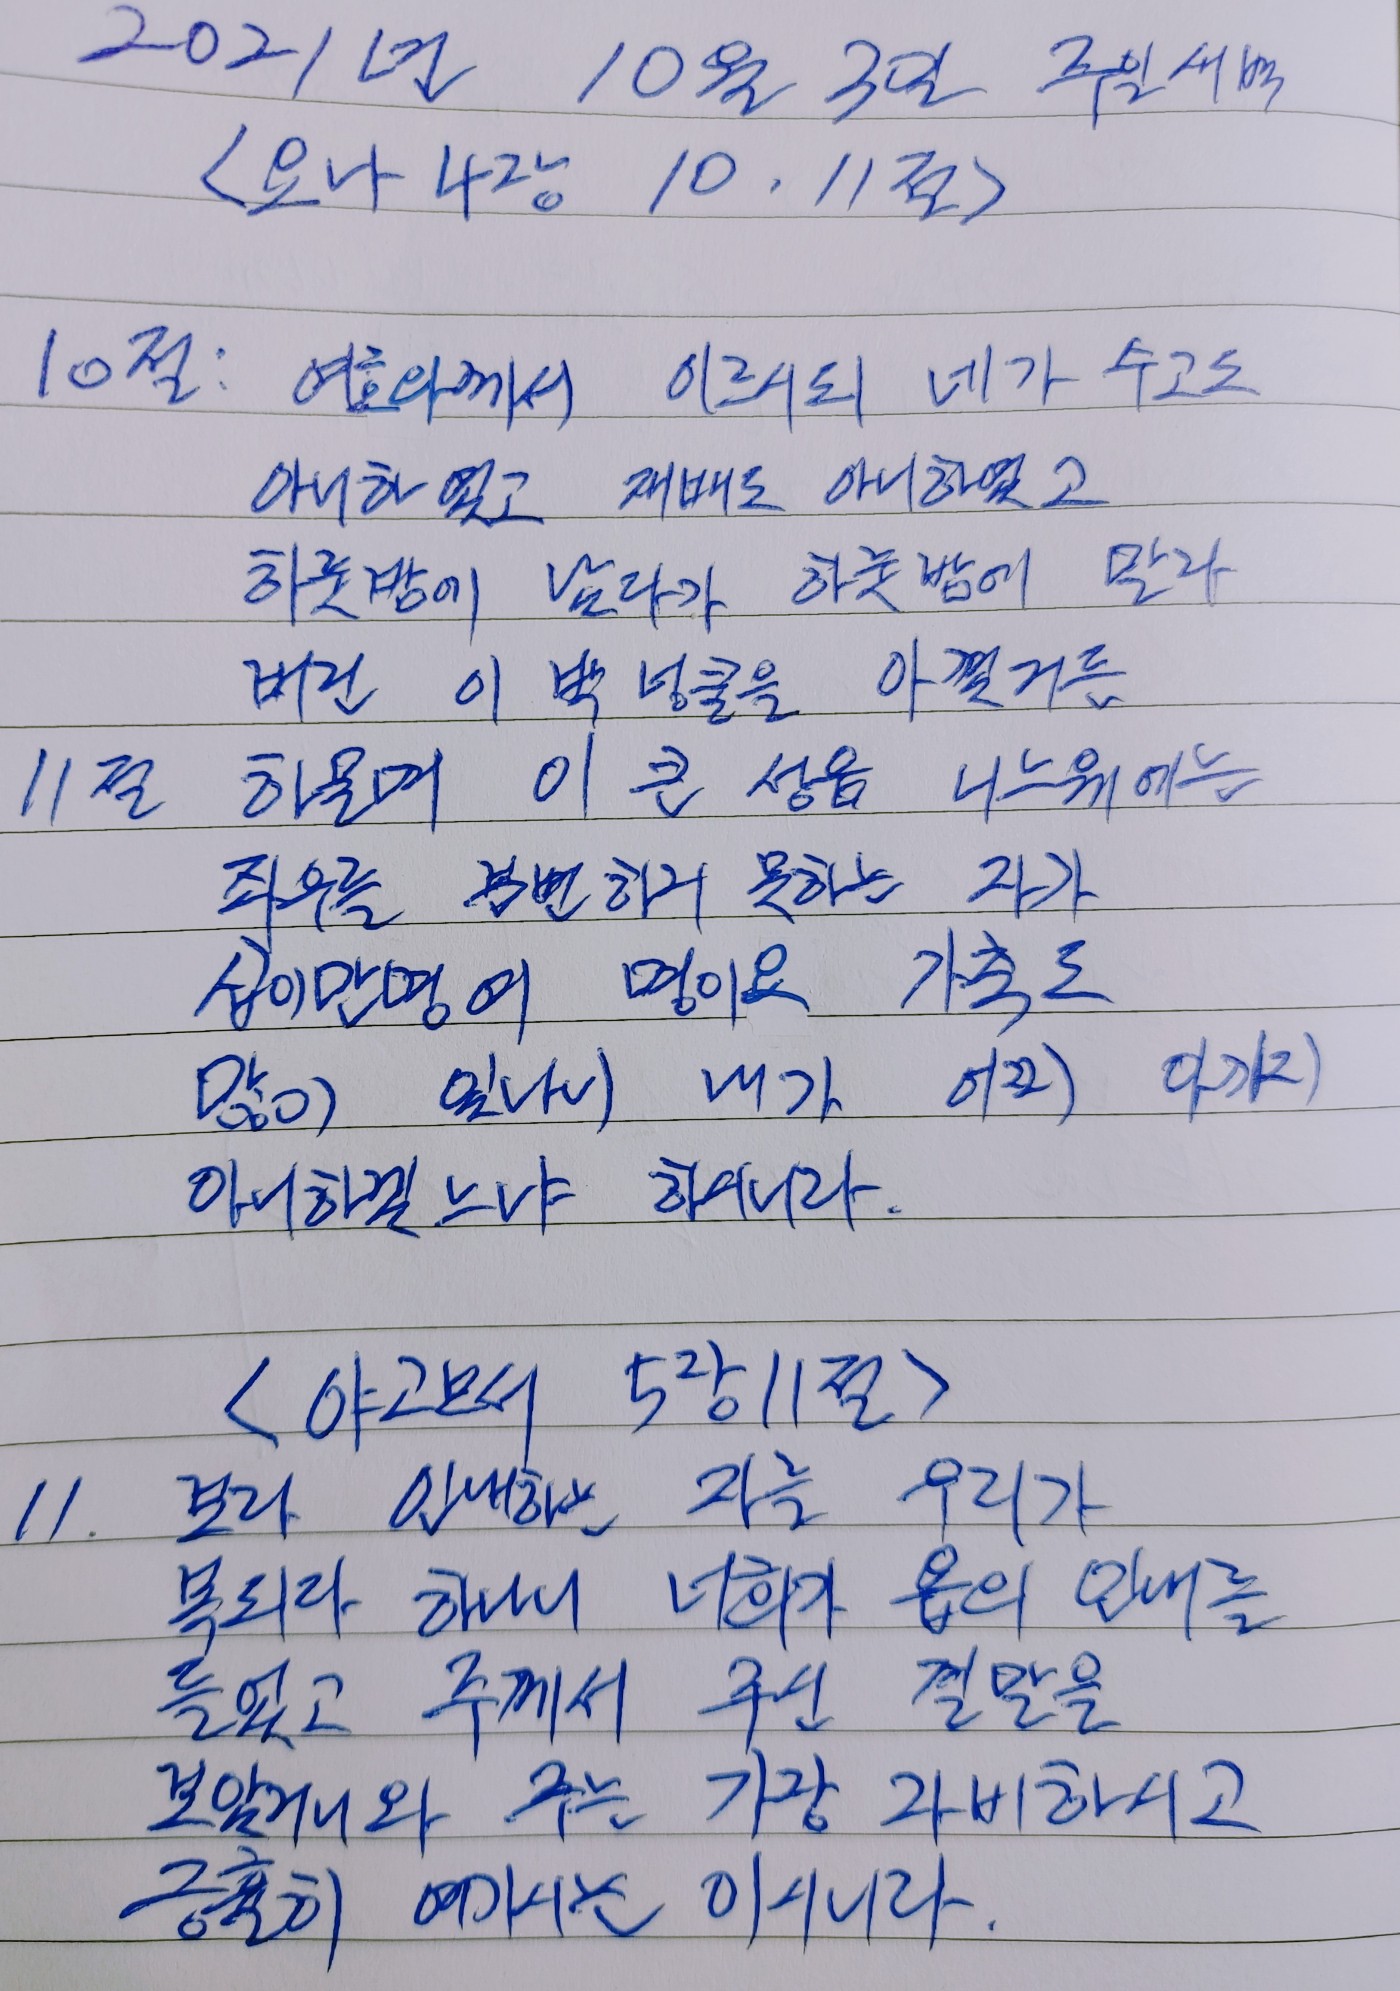 2021년 10월 3일 주일새벽
<요나 4장 10. 11절>
10절: 여호와께서 이르시되 네가 수고도
아니하였고 재배도 아니하였고
하룻밤에 났다가 하룻밤에 말라
버린 이 박 넝쿨을 아꼈거든
11절 하물며 이 큰 성읍 니느웨에는
좌우를 분변하지 못하는 자가
십이만명여 명이요 가축도
많이 있나니 내가 어찌 아끼지
아니하겠느냐 하시니라.
<야고보서 5장11절>
11. 보라 인내하는 자를 우리가
복되다 하나니 너희가 욥의 인내를
들었고 주께서 주신 결말을
보았거니와 주는 가장 자비하시고
긍휼히 여기시는 이시니라.